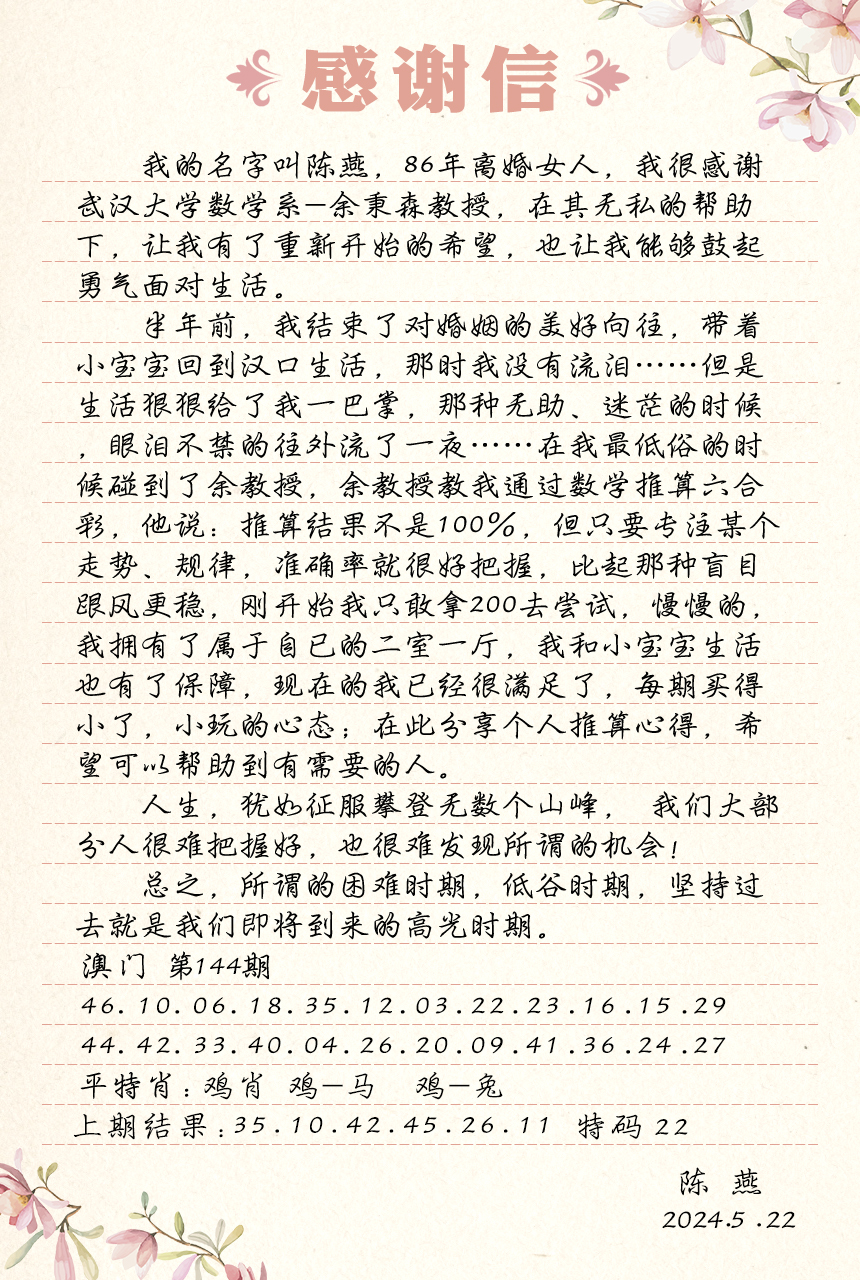 感谢信
我的名字叫陈燕，86年离婚女人，我很感谢
武汉大学数学系—余秉森教授，在其无私的帮助
下，让我有了重新开始的希望，也让我能够鼓起
勇气面对生活。
半年前，我结束了对婚姻的美好向往，带着
小宝宝回到汉口生活，那时我没有流泪……但是
生活狠狠给了我一巴掌，那种无助、迷茫的时候
，眼泪不禁的往外流了一夜……在我最低俗的时
候碰到了余教授，余教授教我通过数学推算六合
彩，他说：推算结果不是100%，但只要专注某个
走势、规律，准确率就很好把握，比起那种盲目
跟风更稳，刚开始我只敢拿200去尝试，慢慢的，
我拥有了属于自已的二室一厅，我和小宝宝生活
也有了保障，现在的我已经很满足了，每期买得
小了，小玩的心态；在此分享个人推算心得，希
望可以帮助到有需要的人。
人生，犹如征服攀登无数个山峰， 我们大部
分人很难把握好，也很难发现所谓的机会！
总之，所谓的困难时期，低谷时期，坚持过
去就是我们即将到来的高光时期。
澳门 第144期
46.10.06.18.35.12.03.22.23.16.15.29
44.42.33.40.04.26.20.09.41.36.24.27
平特肖：鸡肖 鸡—马 鸡—兔
上期结果：35.10.42.45.26.11 特码 22
陈 燕
2024.5.22